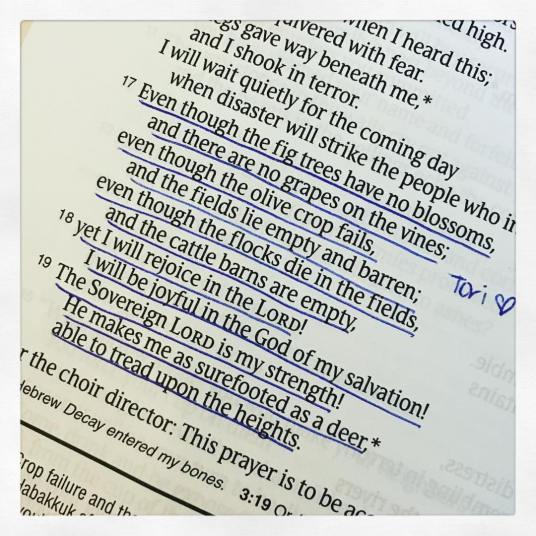 ed high.
when I heard this;
quivered with fear.
legs gave way beneath me,*
and I shook in terror.
I will wait quietly for the coming day
when disaster will strike the people who
17 Even though the fig trees have no blossoms,
and there are no grapes on the vines;
even though the olive crop fails,
and the fields lie empty and barren;
even though the flocks die in the fields,
and the cattle barns are empty,
18 yet I will rejoice in the LORD!
I will be joyful in the God of my salvation!
19 The Sovereign LORD is my strength!
He makes me as surefooted as a deer,*
able to tread upon the heights.
Tori ♡
r the choir director: This prayer is to be
Hebrew Decay entered my bones. 3:19
Crop failure and the
Habakkuk